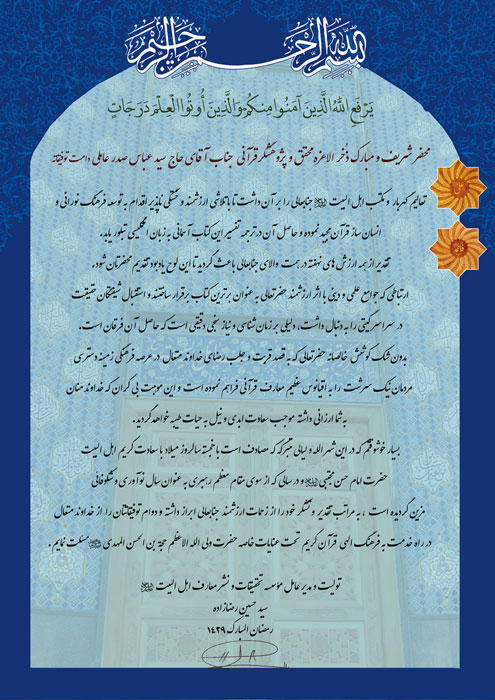 بسم الله الرحمن الرحیم
يَرْفَعِ اللَّهُ الَّذِينَ آمَنُوا مِنكُمْ وَالَّذِينَ أُوتُوا الْعِلْمَ دَرَجَاتٍ
محضر شریف و مبارک ذُخر الاعزه محقق و پژوهشگر قرآنی جناب آقای حاج سید عباس صدر عاملی دامت توفیقاته
تعالیم گهربار و مکتب اهل البیت جنابعالی را بر آن داشت تا با تلاشی ارزشمند و خستگی ناپذیر اقدام به توسعه فرهنگ نورانی و
انسان ساز قرآن مجید نموده و حاصل آن در ترجمه تفسیر این کتاب آسمانی به زبان انگلیسی تبلور یابد.
تقدیر از همه ارزش های نهفته در همت والای جنابعالی باعث گردید تا این لوح یادبود تقدیم محضرتان شود.
ارتباطی که جوامع علمی و دینی با اثر ارزشمند حضرتعالی به عنوان برترین کتاب برقرار ساختند و استقبال شیفتگان حقیقت
در سراسر گیتی را به دنبال داشت، دلیلی بر زمان شناسی و نیاز سنجی دقیقی است که حاصل آن فرقان است.
بدون شک کوشش خالصانه حضرتعالی که به قصد قربت و جلب رضای خداوند متعال در عرصه فرهنگی زمینه دسترسی
مردمان نیک سرشت را به اقیانوس عظیم معارف قرآنی فراهم نموده است و این موهبت بی کران که خداوند منان
به شما ارزانی داشته موجب سعادت ابدی و نیل به حیات طیبه خواهد گردید.
بسیار خوشوقتم که در این شهر الله و لیالی متبرکه که مصادف است با خجسته سالروز میلاد با سعادت کریم اهل البیت
حضرت امام حسن مجتبی و در سالی که از سوی مقام معظم رهبری به عنوان سال نوآوری و شکوفائی
مزین گردیده است ، به مراتب تقدیر و تشکر خود را از زحمات ارزشمند جنابعالی ابراز داشته و دوام توفیقاتتان را از خداوند متعال
در راه خدمت به فرهنگ الهی قرآن کریم تحت عنایات خاصه حضرت ولی الله الاعظم حجة بن الحسن المهدی مسئلت نمایم.
تولیت و مدیر عامل مؤسسه تحقیقات و نشر معارف اهل البیت
سید حسین رضازاده
رمضان المبارک ۱۴۲۹